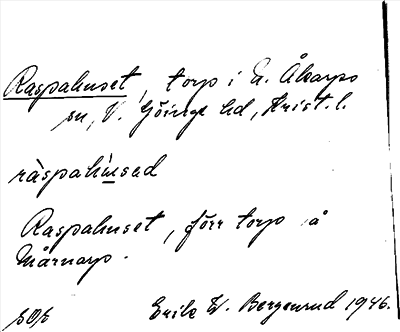 Raspahuset, torp i G. Åkarps
sn, V. Göinge hd, Krist. l.
ràspahùsəd
Raspahuset, förr torp å
Mårnarp.
Erik W. Bergenrud 1946.